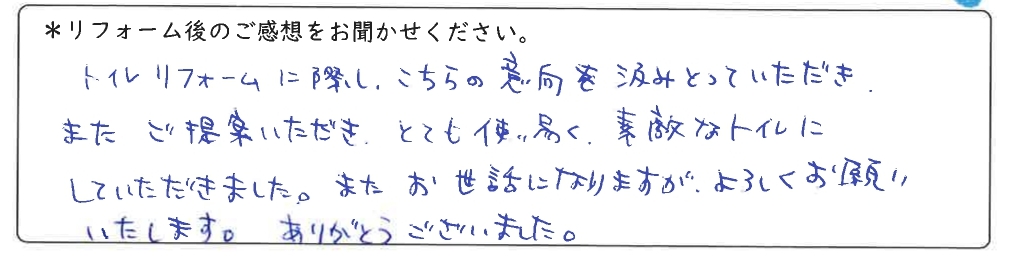 ＊リフォーム後のご感想をお聞かせください。
トイレリフォームに際し、こちらの意向を汲みとっていただき、
また ご提案いただき、とても使い易く、素敵なトイレに
していただきました。また お世話になりますが、よろしくお願い
いたします。 ありがとうございました。